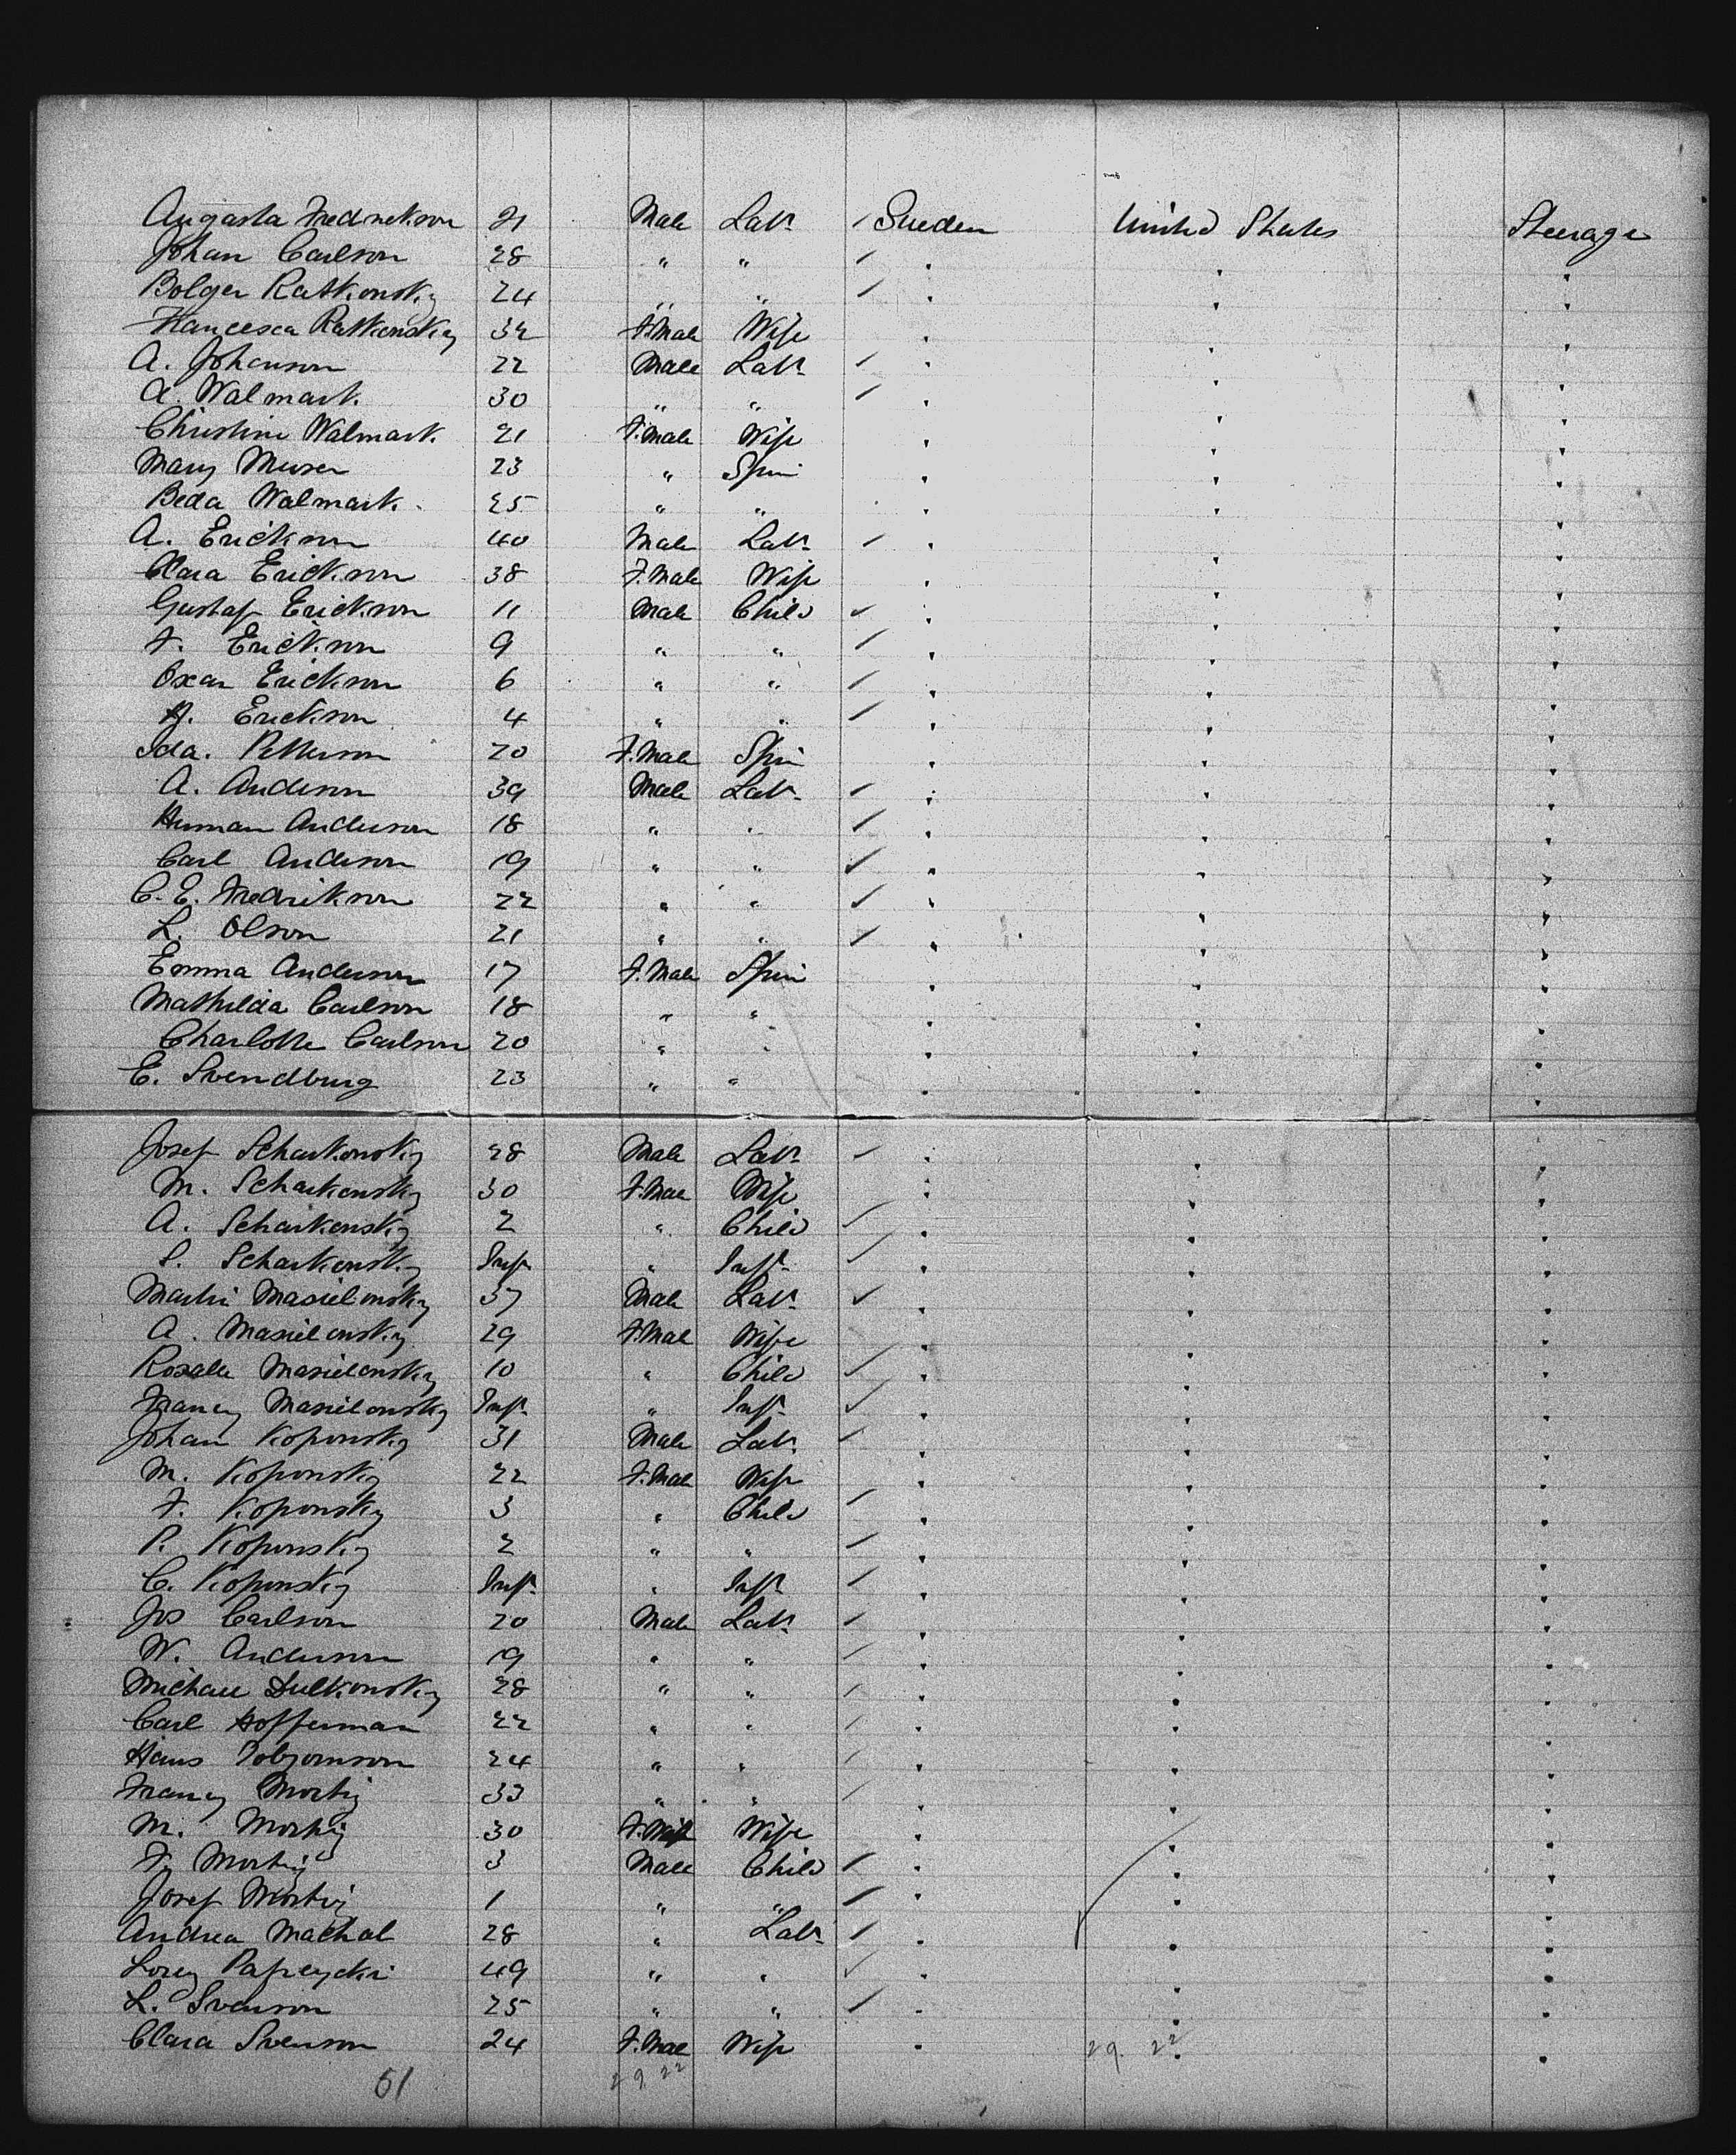 Augasta Fredrickson 21 Male Labr Sweden United States Steerage
Johan Carlson 28 " " " " "
Bolger Ratkonsky 24 " " " " "
Francesca Ratkonsky 32 F.Male Wife " " "
A. Johanson 22 Male Labr " " "
A. Walmark 30 " " " " "
Christine Walmark 21 F.Male Wife " " "
Mary 23 " Spin " " "
Beda Walmark 25 " " " " "
A. Erickson 40 Male Labr " " "
Clara Erickson 38 F.Male Wife " " "
Gustaf Erickson 11 Male Child " " "
F. Erickson 9 " " " " "
Oscar Erickson 6 " " " " "
Erickson 4 " " " " "
Ida. Petterson 20 F.Male Spin " " "
A. Anderson 39 Male Labr " " "
Herman Anderson 18 " " " " "
Carl Anderson 19 " " " " "
C. E. Fredrikson 22 " " " " "
L. Olson 21 " " " " "
Emma Anderson 17 F.Male Spin " " "
Mathilda Carlson 18 " " " " "
Charlotte Carlson 20 " " " " "
E. Svendburg 23 " " " " "
Josef Scharkonsky 28 Male Labr " " "
M. Scharkonsky 30 F.Male Wife " " "
A. Scharkonsky 2 " Child " " "
S. Scharkonsky Inft " Inft " " "
Masielonsky 37 Male Labr " " "
A. Masielonsky 29 F.Male Wife " " "
Rosalie Masielonsky 10 " Child " " "
Masielonsky Inft " Inft " " "
Johan Koponsky 31 Male Labr " " "
M. Koponsky 22 F.Male Wife " " "
F. Koponsky 3 " Child " " "
P. Koponsky 2 " " " " "
C. Koponsky Inft " Inft " " "
Jos Carlson 20 Male Labr " " "
W. Anderson 19 " " " " "
Michael Dulkonsky 28 " " " " "
Carl Hofferman 22 " " " " "
Hans Tobjornson 24 " " " " "
33 " " " " "
M. 30 Wife " " "
F. 3 Male Child " " "
Josef 1 " " " " "
Andrea Machol 28 " Labr " " "
49 " " " " "
L. Svenson 25 " " " " "
Clara Svenson 24 F.Male Wife " " "
51 29 22 29. 22